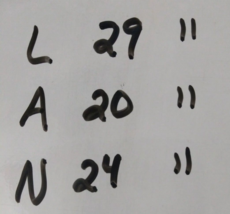 L 29 "
A 20 "
N 24 "